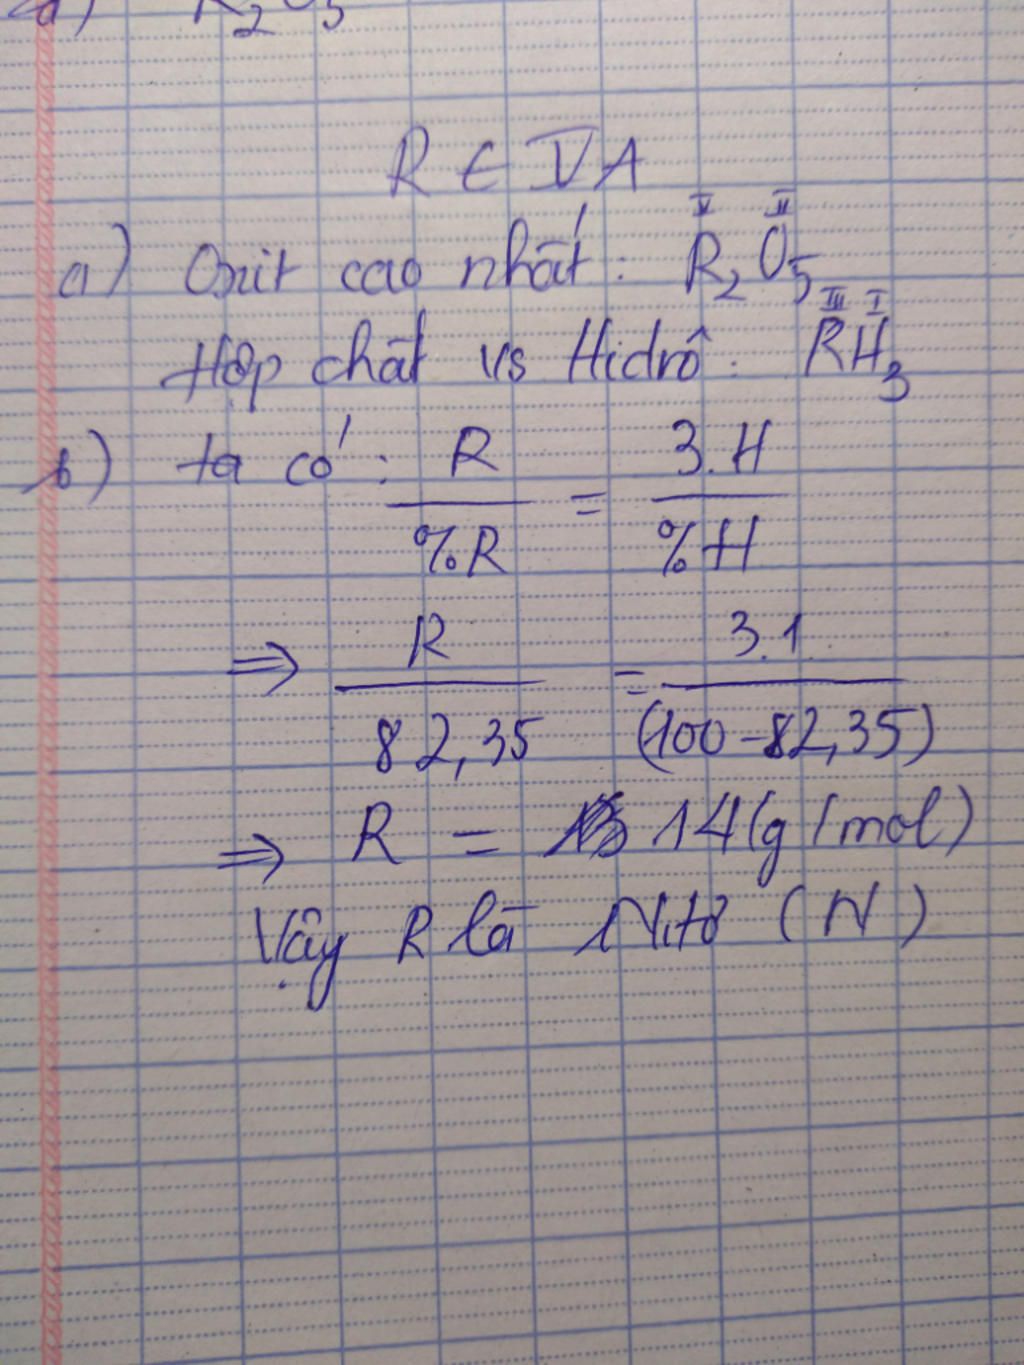 a) R2O5
R ∈ VA
V II
a) Oxit cao nhất: R2O5
III I
Hợp chất vs Hidrô: RH3
b) ta có: R/%R = 3.H/%H
⇒ R/82,35 = 3.1/(100-82,35)
⇒ R = 14 (g/mol)
Vậy R là Nitơ (N)